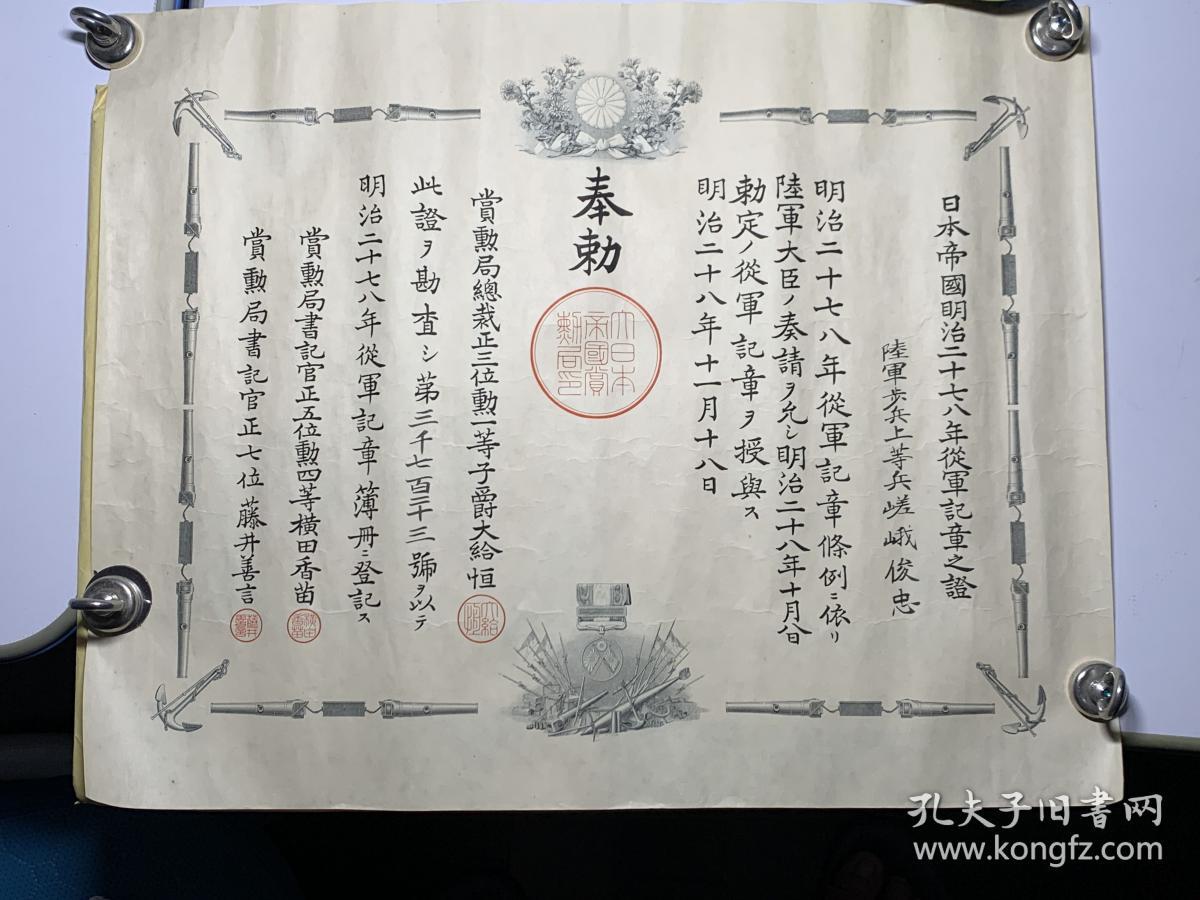 日本帝國明治二十七八年從軍記章之證
陸軍歩兵上等兵嵯峨俊忠
明治二十七八年從軍記章條例ニ依リ
陸軍大臣ノ奏請ヲ允シ明治二十八年十月八日
勅定ノ從軍記章ヲ授與ス
明治二十八年十一月十八日
奉勅
大日本
帝國賞
勳局印
賞勲局總裁正三位勲一等子爵大給恒
大給
此證ヲ勘査シ第三千七百二十三號ヲ以テ
明治二十七八年從軍記章簿冊ニ登記ス
賞勲局書記官正五位勲四等横田香苗
横田
香苗
賞勲局書記官正七位藤井善言
藤井
善言
孔夫子旧书网
www.kongfz.com